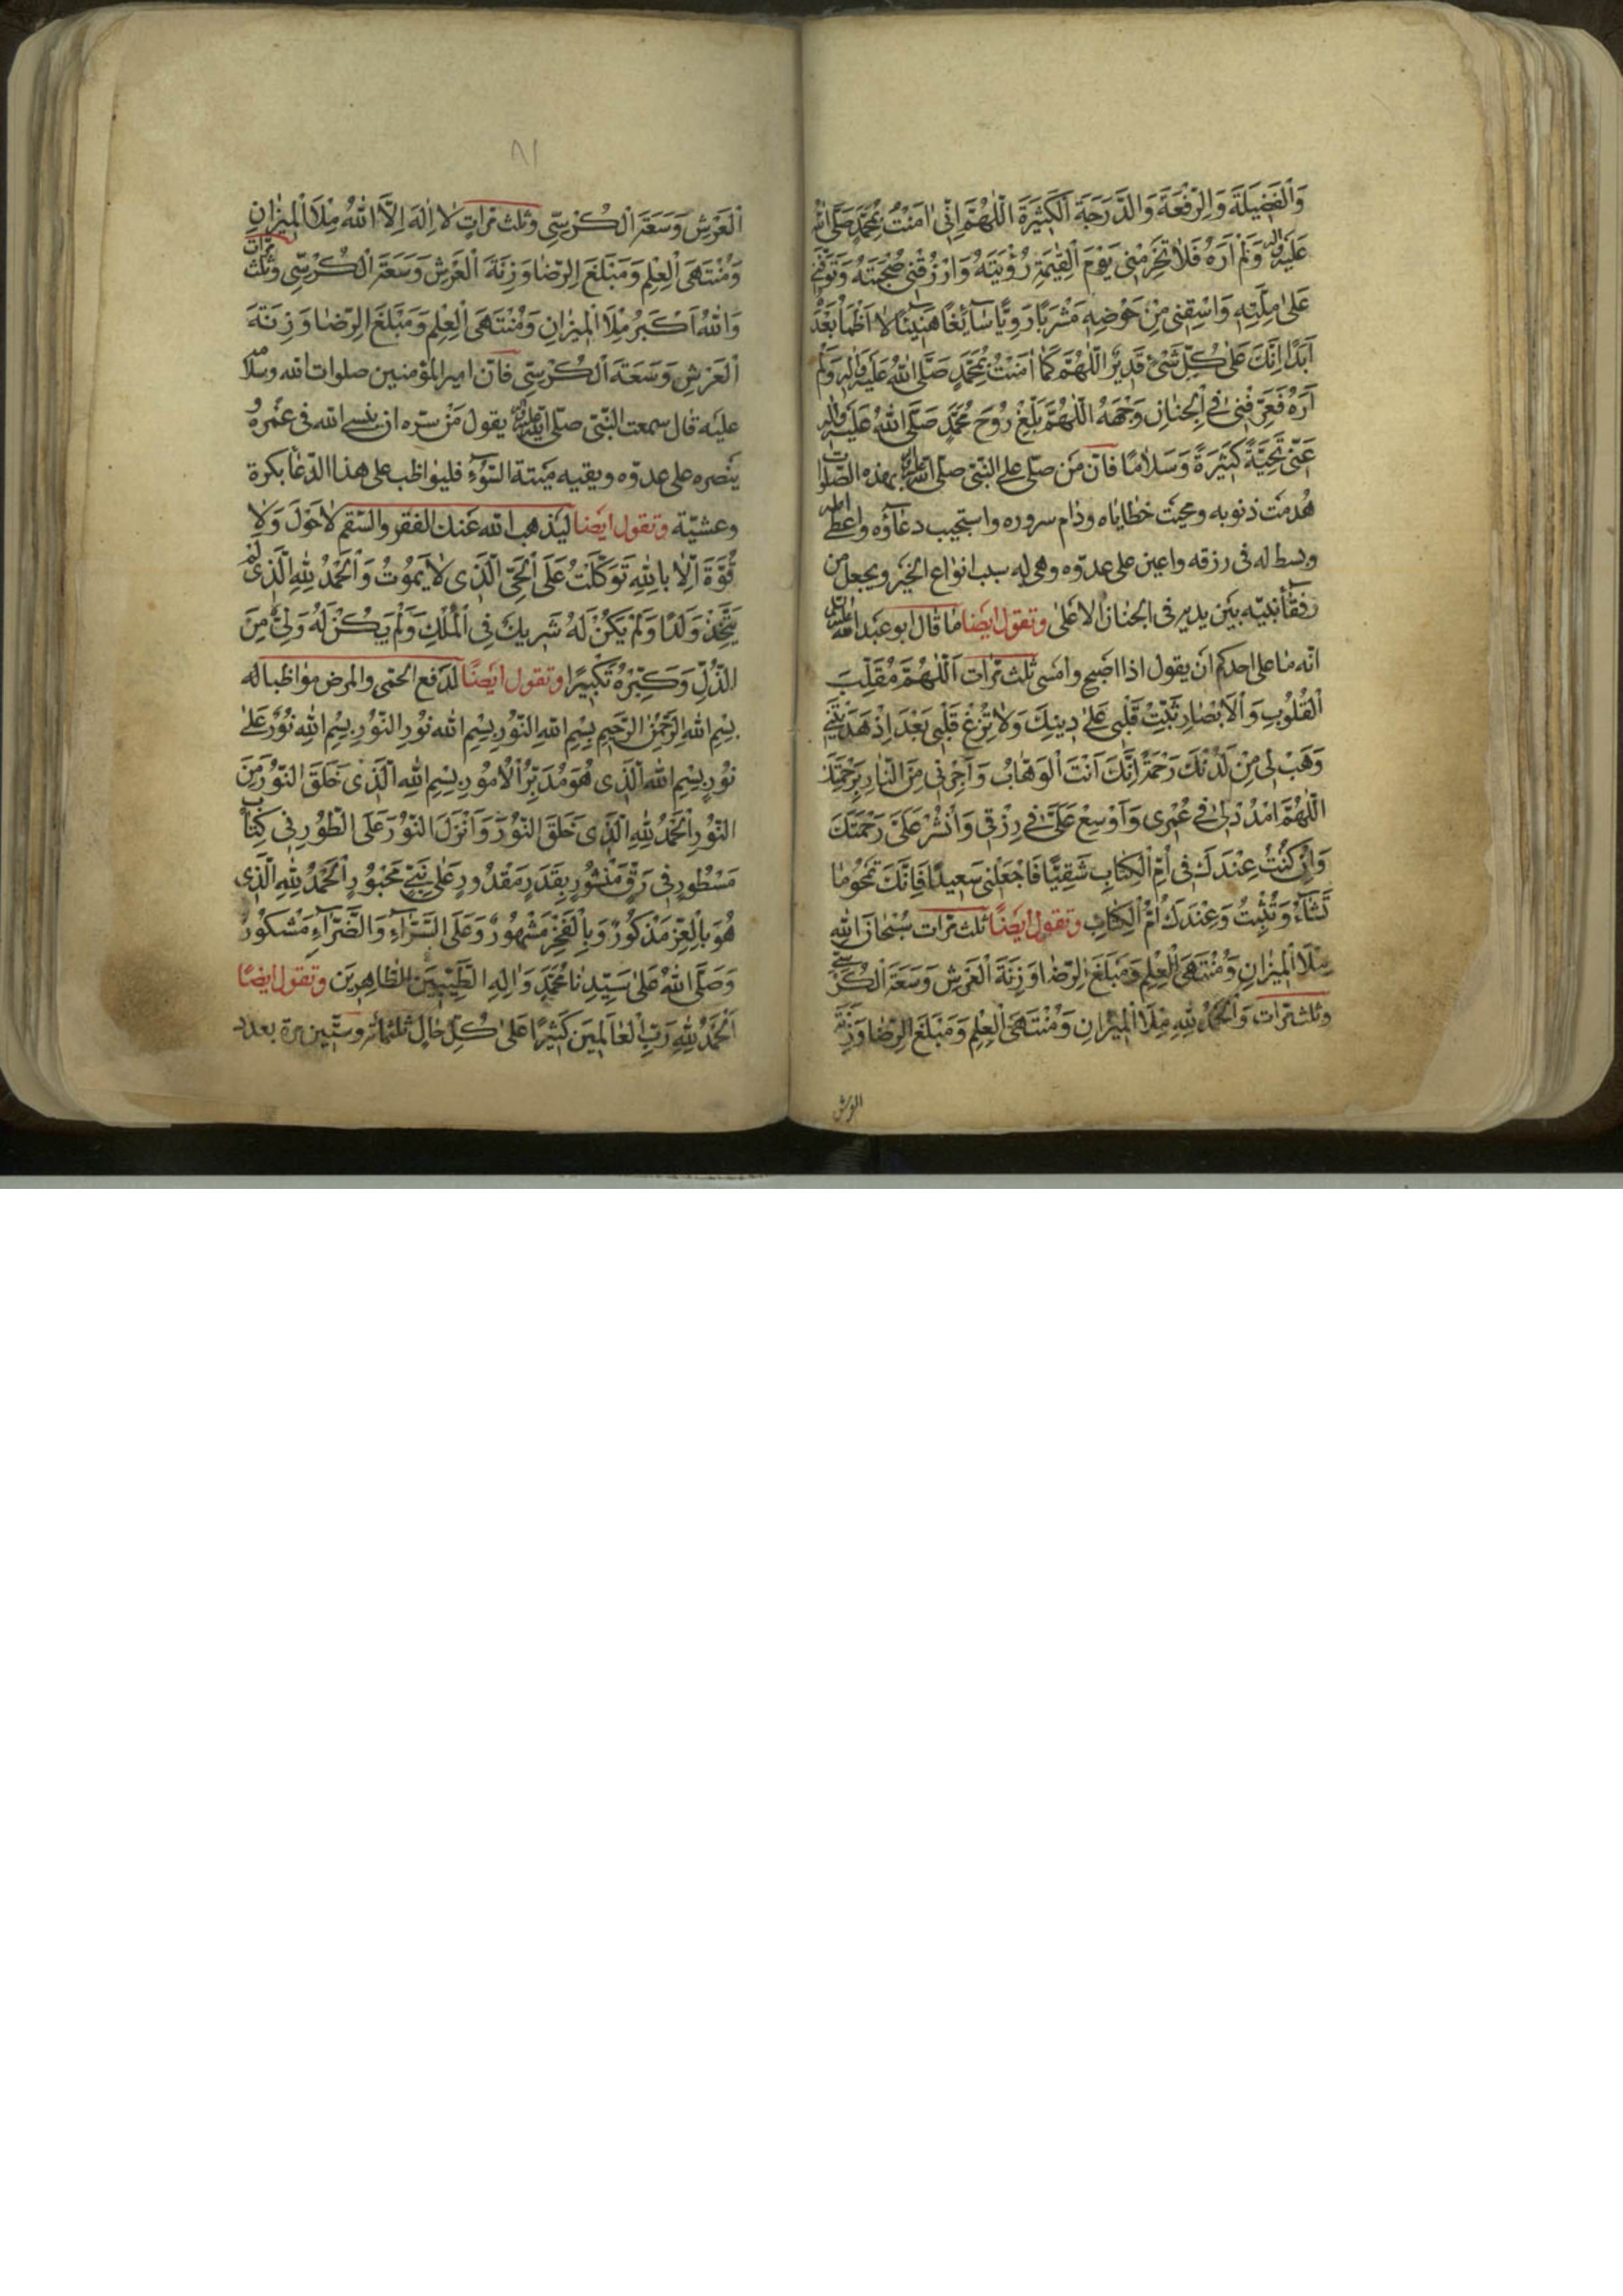 وَالْفَضِيلَةَ وَالرِّفْعَةَ وَالدَّرَجَةَ الْكَثِيرَةَ اللّٰهُمَّ اِنّي اٰمَنْتُ بِمُحَمَّدٍ صَلَّى اللهُ
عَلَيْهِ وَاٰلِهِ وَلَمْ اَرَهُ فَلَا تَحْرِمْني يَوْمَ الْقِيٰمَةِ رُؤْيَتَهُ وَارْزُقْني صُحْبَتَهُ وَتَوَفَّني
عَلىٰ مِلَّتِهِ وَاسْقِني مِنْ حَوْضِهِ مَشْرَبًا رَوِيًّا سٰآئِغًا هَنيٓئًا لا اَظْمَأُ بَعْدَهُ
اَبَدًا اِنَّكَ عَلىٰ كُلِّ شَيْءٍ قَديرٌ اَللّٰهُمَّ كَمٰا اٰمَنْتُ بِمُحَمَّدٍ صَلَّى اللهُ عَلَيْهِ وَاٰلِهِ وَلَمْ
اَرَهُ فَعَرِّفْني فِي الْجِنٰانِ وَجْهَهُ اَللّٰهُمَّ بَلِّغْ رُوحَ مُحَمَّدٍ صَلَّى اللهُ عَلَيْهِ وَاٰلِهِ
عَنّي تَحِيَّةً كَثيرَةً وَسَلٰامًا فانّ مَن صلّى على النّبيّ صلّى الله عليه واله بهذه الصّلوات
هُدمت ذنوبه ومحيت خطاياه ودام سروره واستجيب دعآؤه واعطى امله
وبسط له في رزقه واعين على عدوّه وهي له سبب انواع الخير ويجعل من
رفقآء نبيّه بين يديه في الجنان الاعلى وتقول ايضا ما قال ابو عبد الله عليه السلم
انّه ما على احدكم ان يقول اذا اصبح وامسى ثلث مرّات اَللّٰهُمَّ مُقَلِّبَ
الْقُلُوبِ وَالْاَبْصٰارِ ثَبِّتْ قَلْبي عَلىٰ دينِكَ وَلا تُزِغْ قَلْبي بَعْدَ اِذْ هَدَيْتَني
وَهَبْ لي مِنْ لَدُنْكَ رَحْمَةً اِنَّكَ اَنْتَ الْوَهّٰابُ وَاَجِرْني مِنَ النّٰارِ بِرَحْمَتِكَ
اَللّٰهُمَّ امْدُدْ لي في عُمْري وَاَوْسِعْ عَلَيَّ في رِزْقي وَانْشُرْ عَلَيَّ رَحْمَتَكَ
وَاِنْ كُنْتُ عِنْدَكَ في اُمِّ الْكِتٰابِ شَقِيًّا فَاجْعَلْني سَعيدًا فَاِنَّكَ تَمْحُو مٰا
تَشٰآءُ وَتُثْبِتُ وَعِنْدَكَ اُمُّ الْكِتٰابِ وتقول ايضًا ثلث مرّات سُبْحٰانَ اللهِ
مِلَأَ الْميزٰانِ وَمُنْتَهَى الْعِلْمِ وَمَبْلَغَ الرِّضٰا وَزِنَةَ الْعَرْشِ وَسَعَةَ الْكُرْسِيِّ
وثلث مرّات وَالْحَمْدُ لِلّٰهِ مِلَأَ الْميزٰانِ وَمُنْتَهَى الْعِلْمِ وَمَبْلَغَ الرِّضٰا وَزِنَةَ
العرش
٨١
الْعَرْشِ وَسَعَةَ الْكُرْسِيِّ وثلث مرّات لا اِلٰهَ اِلَّا اللهُ مِلَأَ الْميزٰانِ
وَمُنْتَهَى الْعِلْمِ وَمَبْلَغَ الرِّضٰا وَزِنَةَ الْعَرْشِ وَسَعَةَ الْكُرْسِيِّ وثلث مرّات
وَاللهُ اَكْبَرُ مِلَأَ الْميزٰانِ وَمُنْتَهَى الْعِلْمِ وَمَبْلَغَ الرِّضٰا وَزِنَةَ
الْعَرْشِ وَسَعَةَ الْكُرْسِيِّ فانّ امير المؤمنين صلوات الله وسلامه
عليه قال سمعت النّبيّ صلّى الله عليه واله يقول مَنْ سرّه ان ينسئ الله في عمره و
ينصره على عدوّه ويقيه ميتة السّوٓء فليواظب على هذا الدّعآ بكرة
وعشيّة وتقول ايضا ليذهب الله عنك الفقر والسّقم لٰا حَوْلَ وَلٰا
قُوَّةَ اِلّٰا بِاللهِ تَوَكَّلْتُ عَلَى الْحَيِّ الَّذي لٰا يَمُوتُ وَالْحَمْدُ لِلّٰهِ الَّذي لَمْ
يَتَّخِذْ وَلَدًا وَلَمْ يَكُنْ لَهُ شَريكٌ فِي الْمُلْكِ وَلَمْ يَكُنْ لَهُ وَلِيٌّ مِنَ
الذُّلِّ وَكَبِّرْهُ تَكْبيرًا وتقول ايضًا لدفع الحمّى والمرض مواظبا له
بِسْمِ اللهِ الرَّحْمٰنِ الرَّحيمِ بِسْمِ اللهِ النُّورِ بِسْمِ اللهِ نُورِ النُّورِ بِسْمِ اللهِ نُورٌ عَلىٰ
نُورٍ بِسْمِ اللهِ الَّذي هُوَ مُدَبِّرُ الْاُمُورِ بِسْمِ اللهِ الَّذي خَلَقَ النُّورَ مِنَ
النُّورِ اَلْحَمْدُ لِلّٰهِ الَّذي خَلَقَ النُّورَ وَاَنْزَلَ النُّورَ عَلَى الطُّورِ في كِتٰابٍ
مَسْطُورٍ في رَقٍّ مَنْشُورٍ بِقَدَرٍ مَقْدُورٍ عَلىٰ نَبِيٍّ مَحْبُورٍ اَلْحَمْدُ لِلّٰهِ الَّذي
هُوَ بِالْعِزِّ مَذْكُورٌ وَبِالْفَخْرِ مَشْهُورٌ وَعَلَى السَّرّٰآءِ وَالضَّرّٰآءِ مَشْكُورٌ
وَصَلَّى اللهُ عَلىٰ سَيِّدِنٰا مُحَمَّدٍ وَاٰلِهِ الطَّيِّبينَ الطّٰاهِرينَ وتقول ايضًا
اَلْحَمْدُ لِلّٰهِ رَبِّ الْعٰالَمينَ كَثيرًا عَلىٰ كُلِّ حٰالٍ ثلثمائة وستّين مرة بعدد